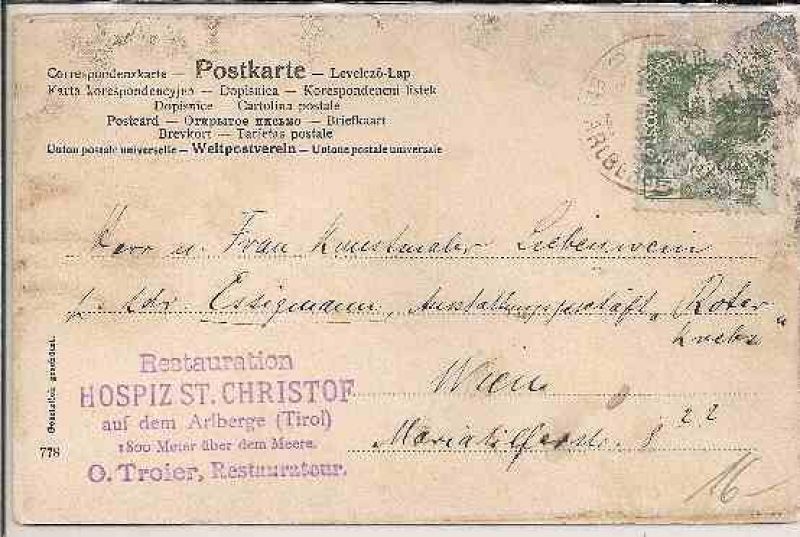 Correspondenzkarte — Postkarte — Levelező-Lap
Karta korespondencyjna — Dopisnica — Korespondencni listek
Dopisnice — Cartolina postale
Postcard — Открытое письмо — Briefkaart
Brevkort — Tarjetas postale
Union postale universelle — Weltpostverein — Unione postale universale
Herr u. Frau Kunstmaler Liebenwein
Essigmann, Ausstattungsgeschäft „Roter
Krebs“
Wien
Mariahilferstr. 8 22
Restauration
HOSPIZ ST. CHRISTOF
auf dem Arlberge (Tirol)
1800 Meter über dem Meere.
O. Troier, Restaurateur.
Gesetzlich geschützt.
778
16—